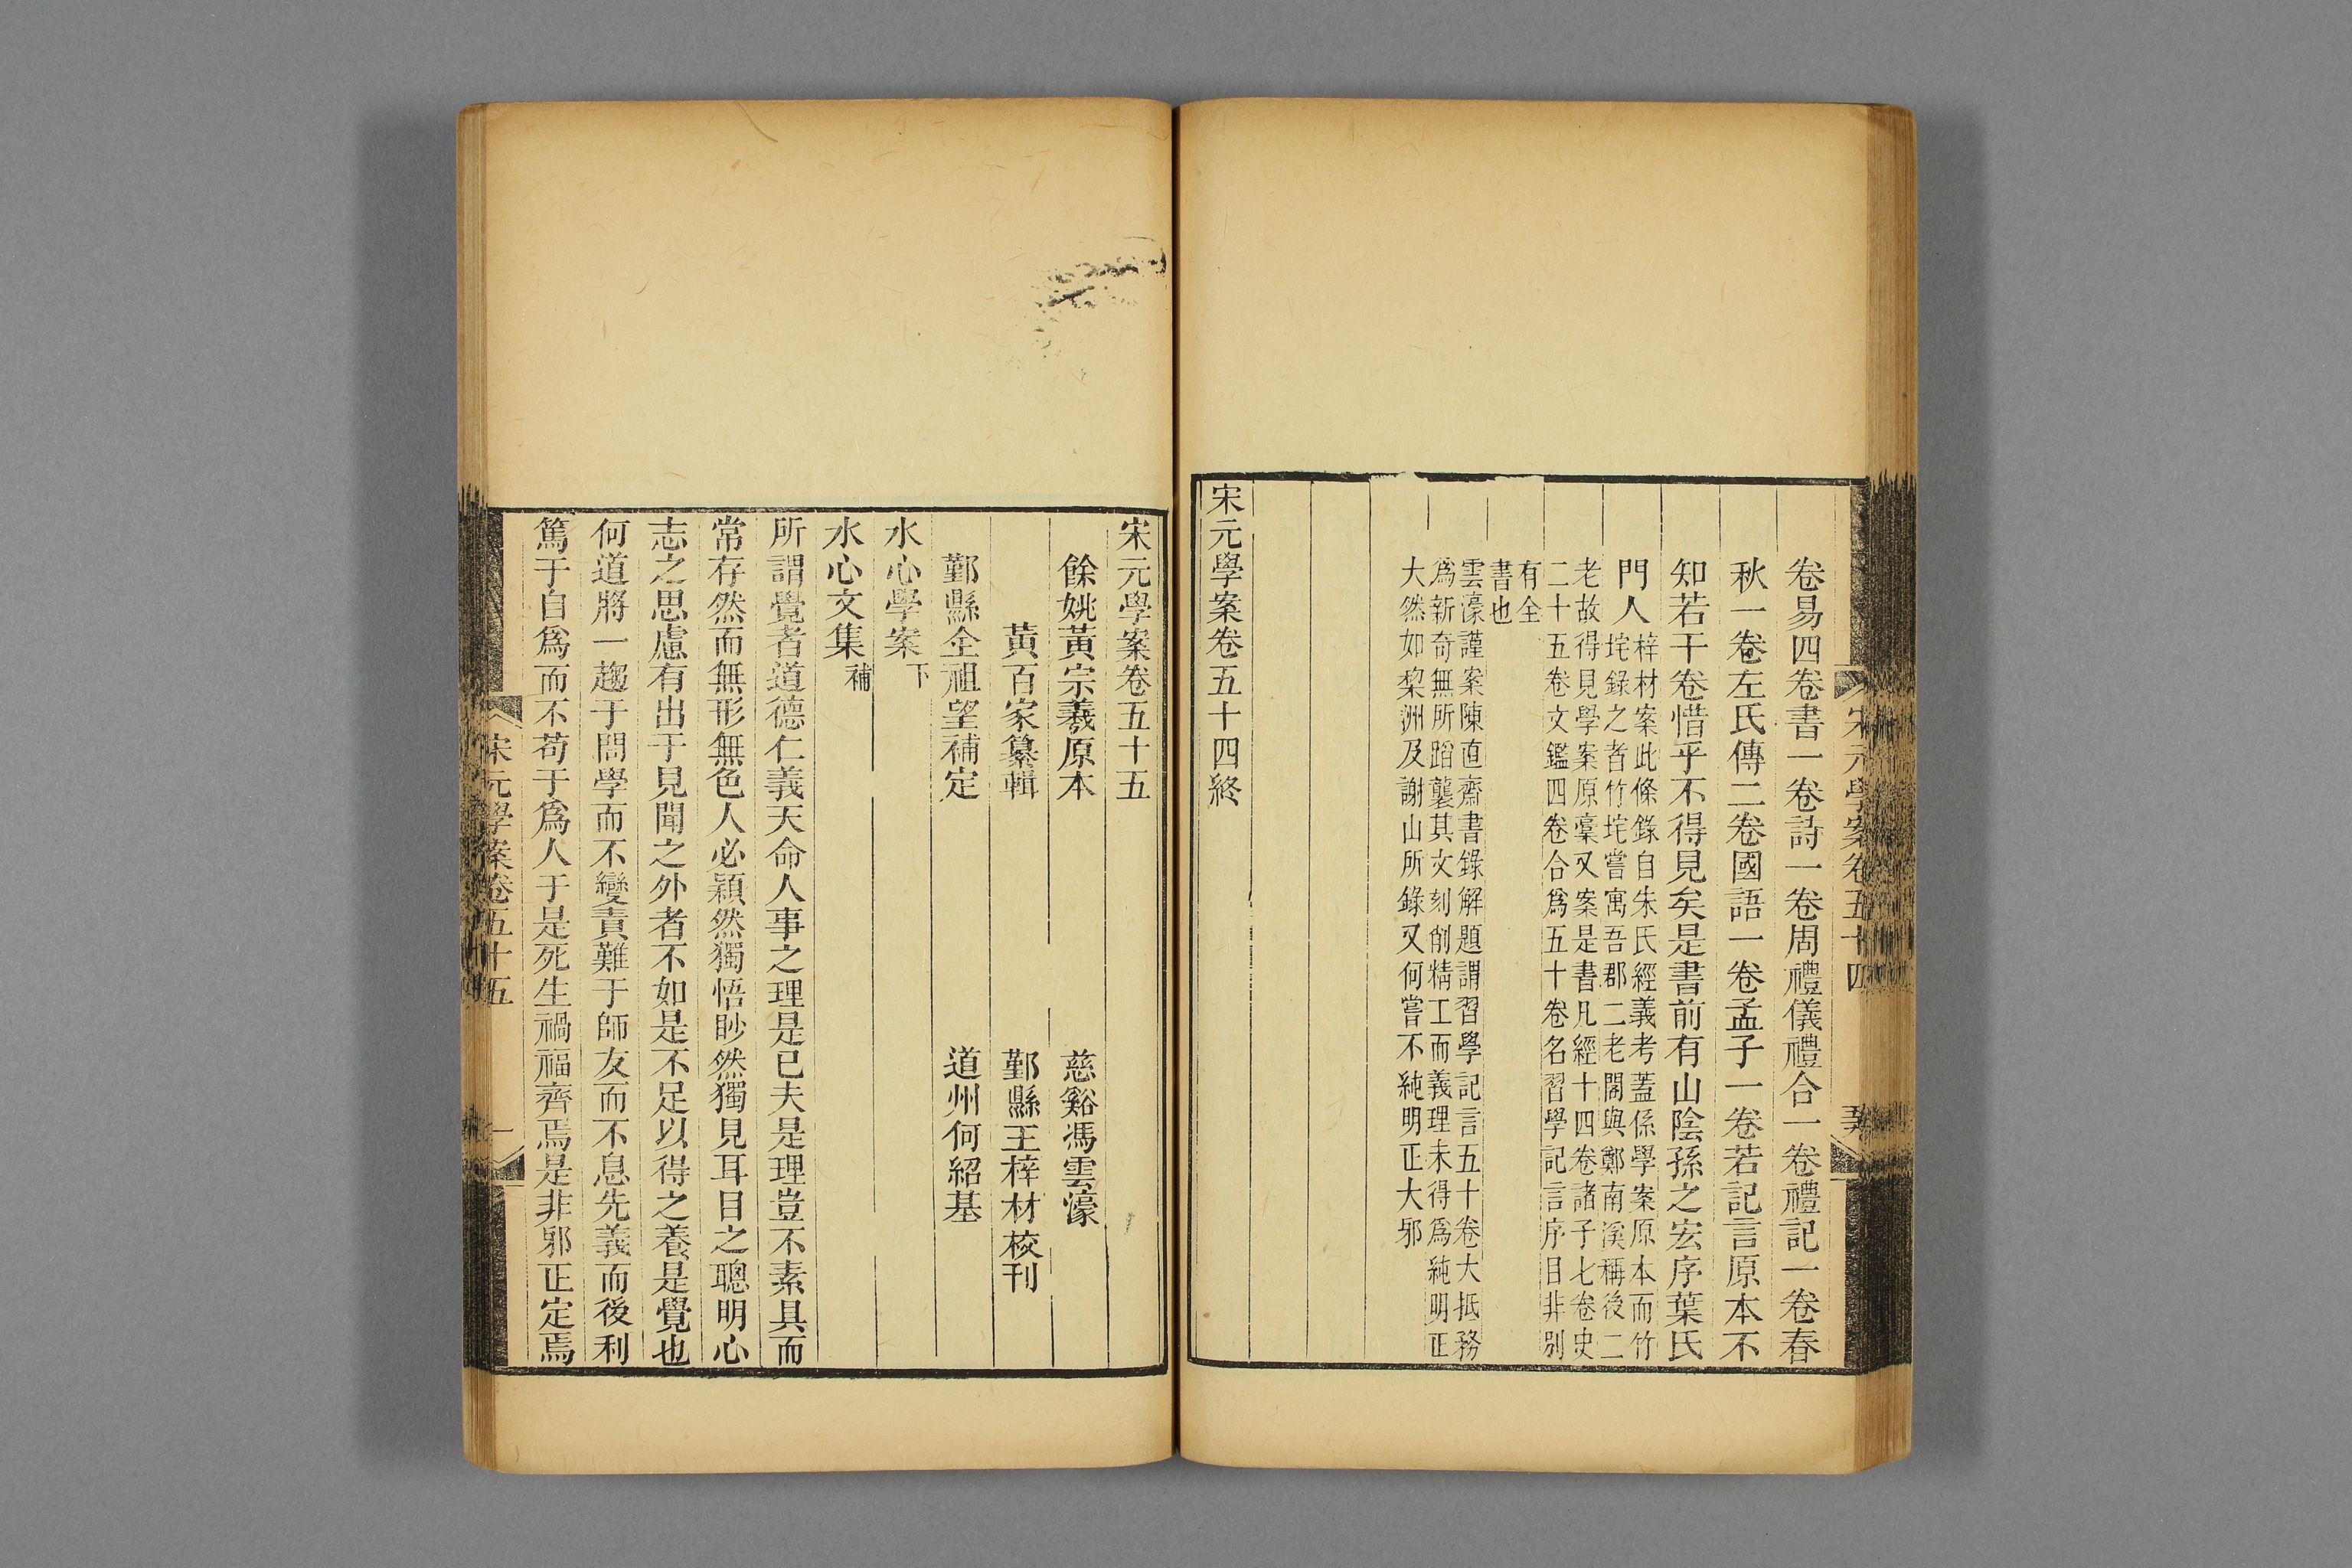 卷易四卷書一卷詩一卷周禮儀禮合一卷禮記一卷春
秋一卷左氏傳二卷國語一卷孟子一卷若記言原本不
知若干卷惜乎不得見矣是書前有山陰孫之宏序葉氏
門人
梓材案此條錄自朱氏經義考蓋係學案原本而竹
垞錄之者竹垞嘗寓吾郡二老閣與鄭南溪稱後二
老故得見學案原稾又案是書凡經十四卷諸子七卷史
二十五卷文鑑四卷合爲五十卷名習學記言序目非別
有全
書也
雲濠謹案陳直齋書錄解題謂習學記言五十卷大抵務
爲新奇無所蹈襲其文刻削精工而義理未得爲純明正
大然如棃洲及謝山所錄又何嘗不純明正大邪
宋元學案卷五十四終
宋元學案卷五十四
宋元學案卷五十五
餘姚黃宗羲原本 慈谿馮雲濠
黃百家纂輯 鄞縣王梓材校刊
鄞縣全祖望補定 道州何紹基
水心學案下
水心文集補
所謂覺者道德仁義天命人事之理是已夫是理豈不素具而
常存然而無形無色人必穎然獨悟眇然獨見耳目之聰明心
志之思慮有出于見聞之外者不如是不足以得之養是覺也
何道將一趨于問學而不變責難于師友而不息先義而後利
篤于自爲而不苟于爲人于是死生禍福齊焉是非邪正定焉
宋元學案卷五十五
一